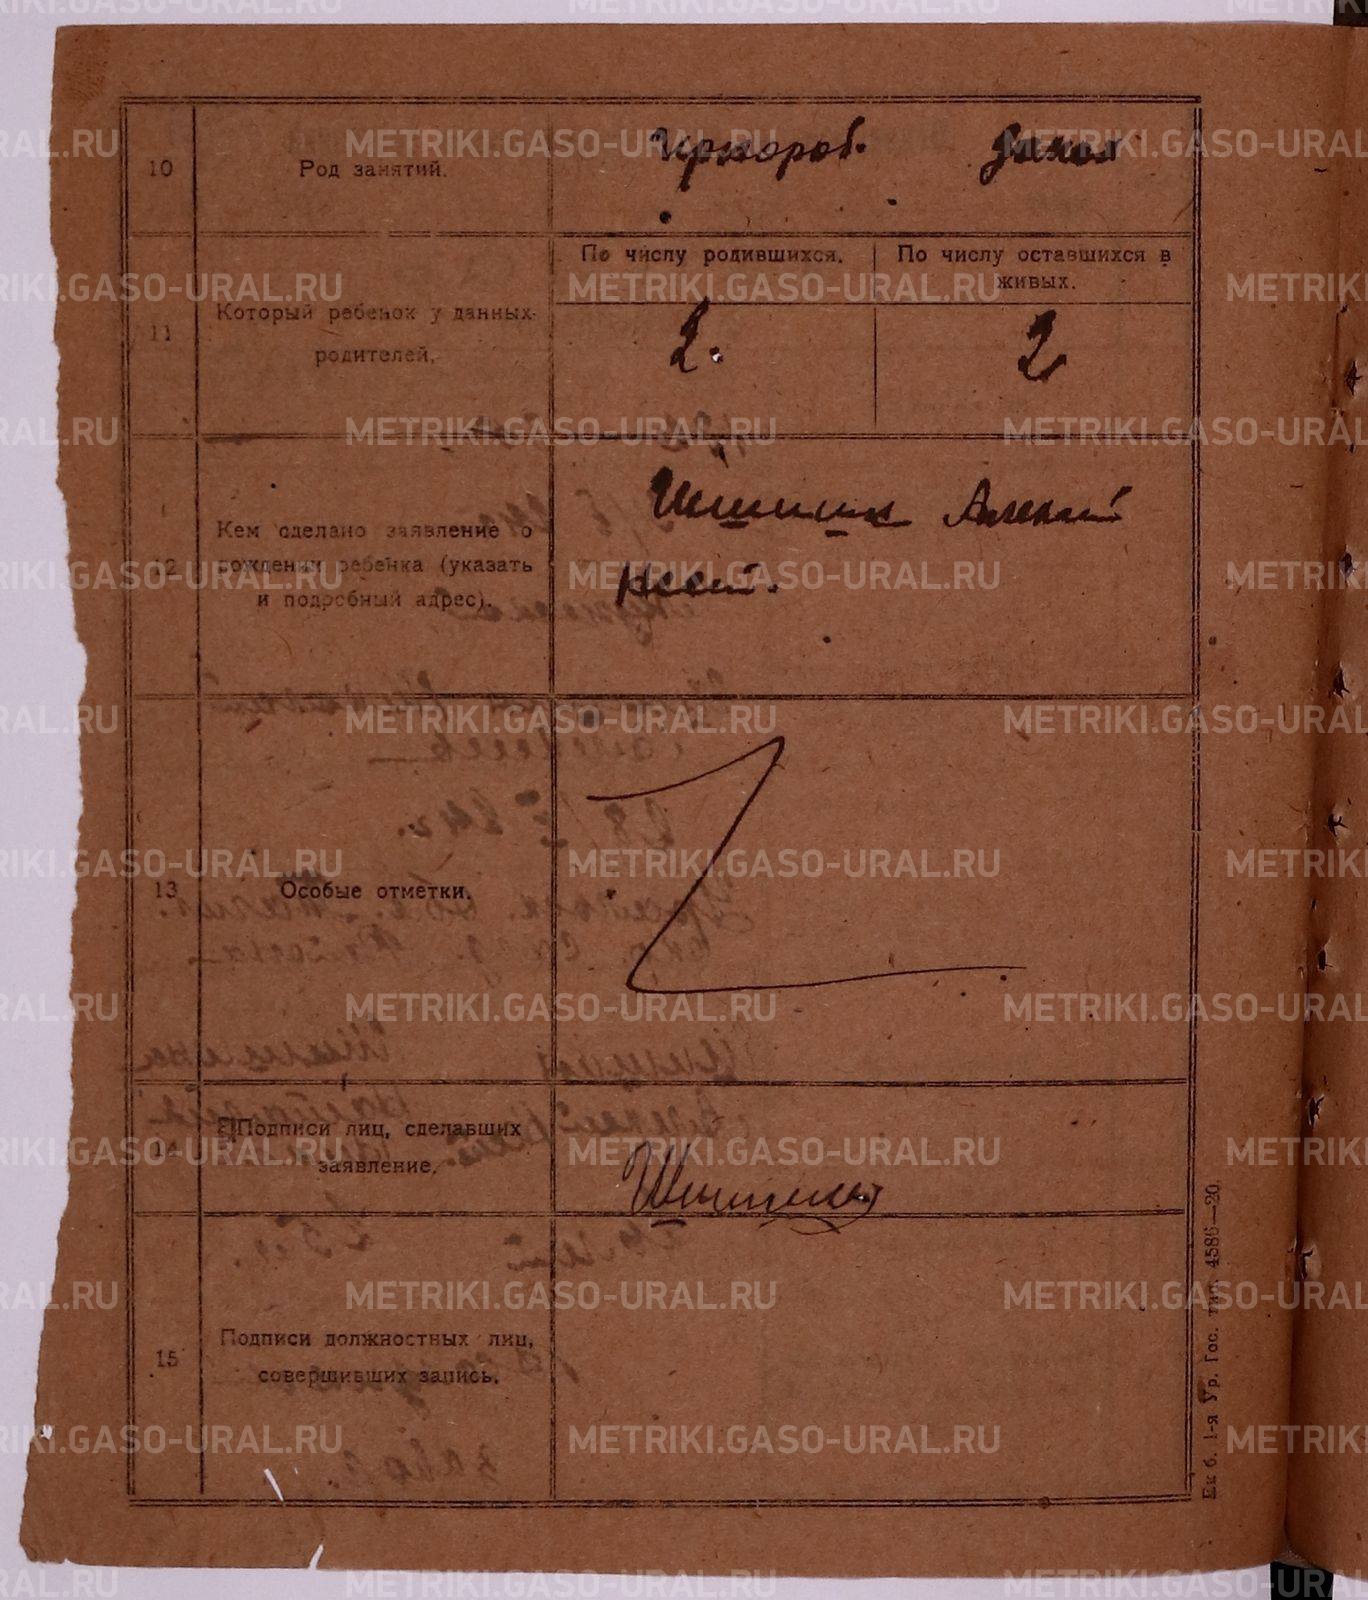 10
Род занятий.
Чернораб.
11
Который ребенок у данных
родителей.
По числу родившихся.
По числу оставшихся в
живых.
2.
2
12
Кем сделано заявление о
рождении ребенка (указать
и подробный адрес).
Шишин Алексей
13
Особые отметки.
14
Подписи лиц, сделавших
заявление.
15
Подписи должностных лиц,
совершивших запись.
Ек б. 1-я Ур. Гос. тип. 4586—20.
METRIKI.GASO-URAL.RU